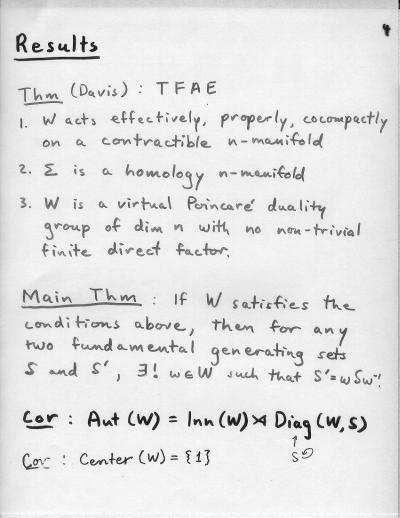 4
Results
Thm (Davis) : TFAE
1. W acts effectively, properly, cocompactly
on a contractible n-manifold
2. Σ is a homology n-manifold
3. W is a virtual Poincaré duality
group of dim n with no non-trivial
finite direct factor.
Main Thm : If W satisfies the
conditions above, then for any
two fundamental generating sets
S and S', ∃! w∈W such that S'=wSw⁻¹.
Cor : Aut (W) = Inn (W) ⋊ Diag (W,S)
Cor : Center (W) = {1}
↑
S